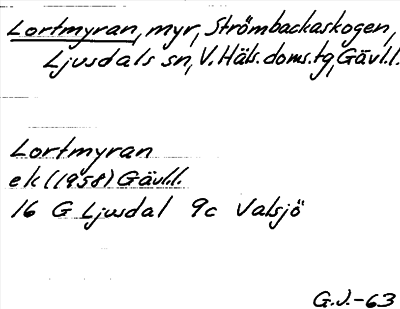 Lortmyran, myr, Strömbackaskogen,
Ljusdals sn, V. Häls. doms.tg, Gävl.l.
Lortmyran
ek (1958) Gävl.l.
16 G Ljusdal 9c Valsjö
G.J.-63